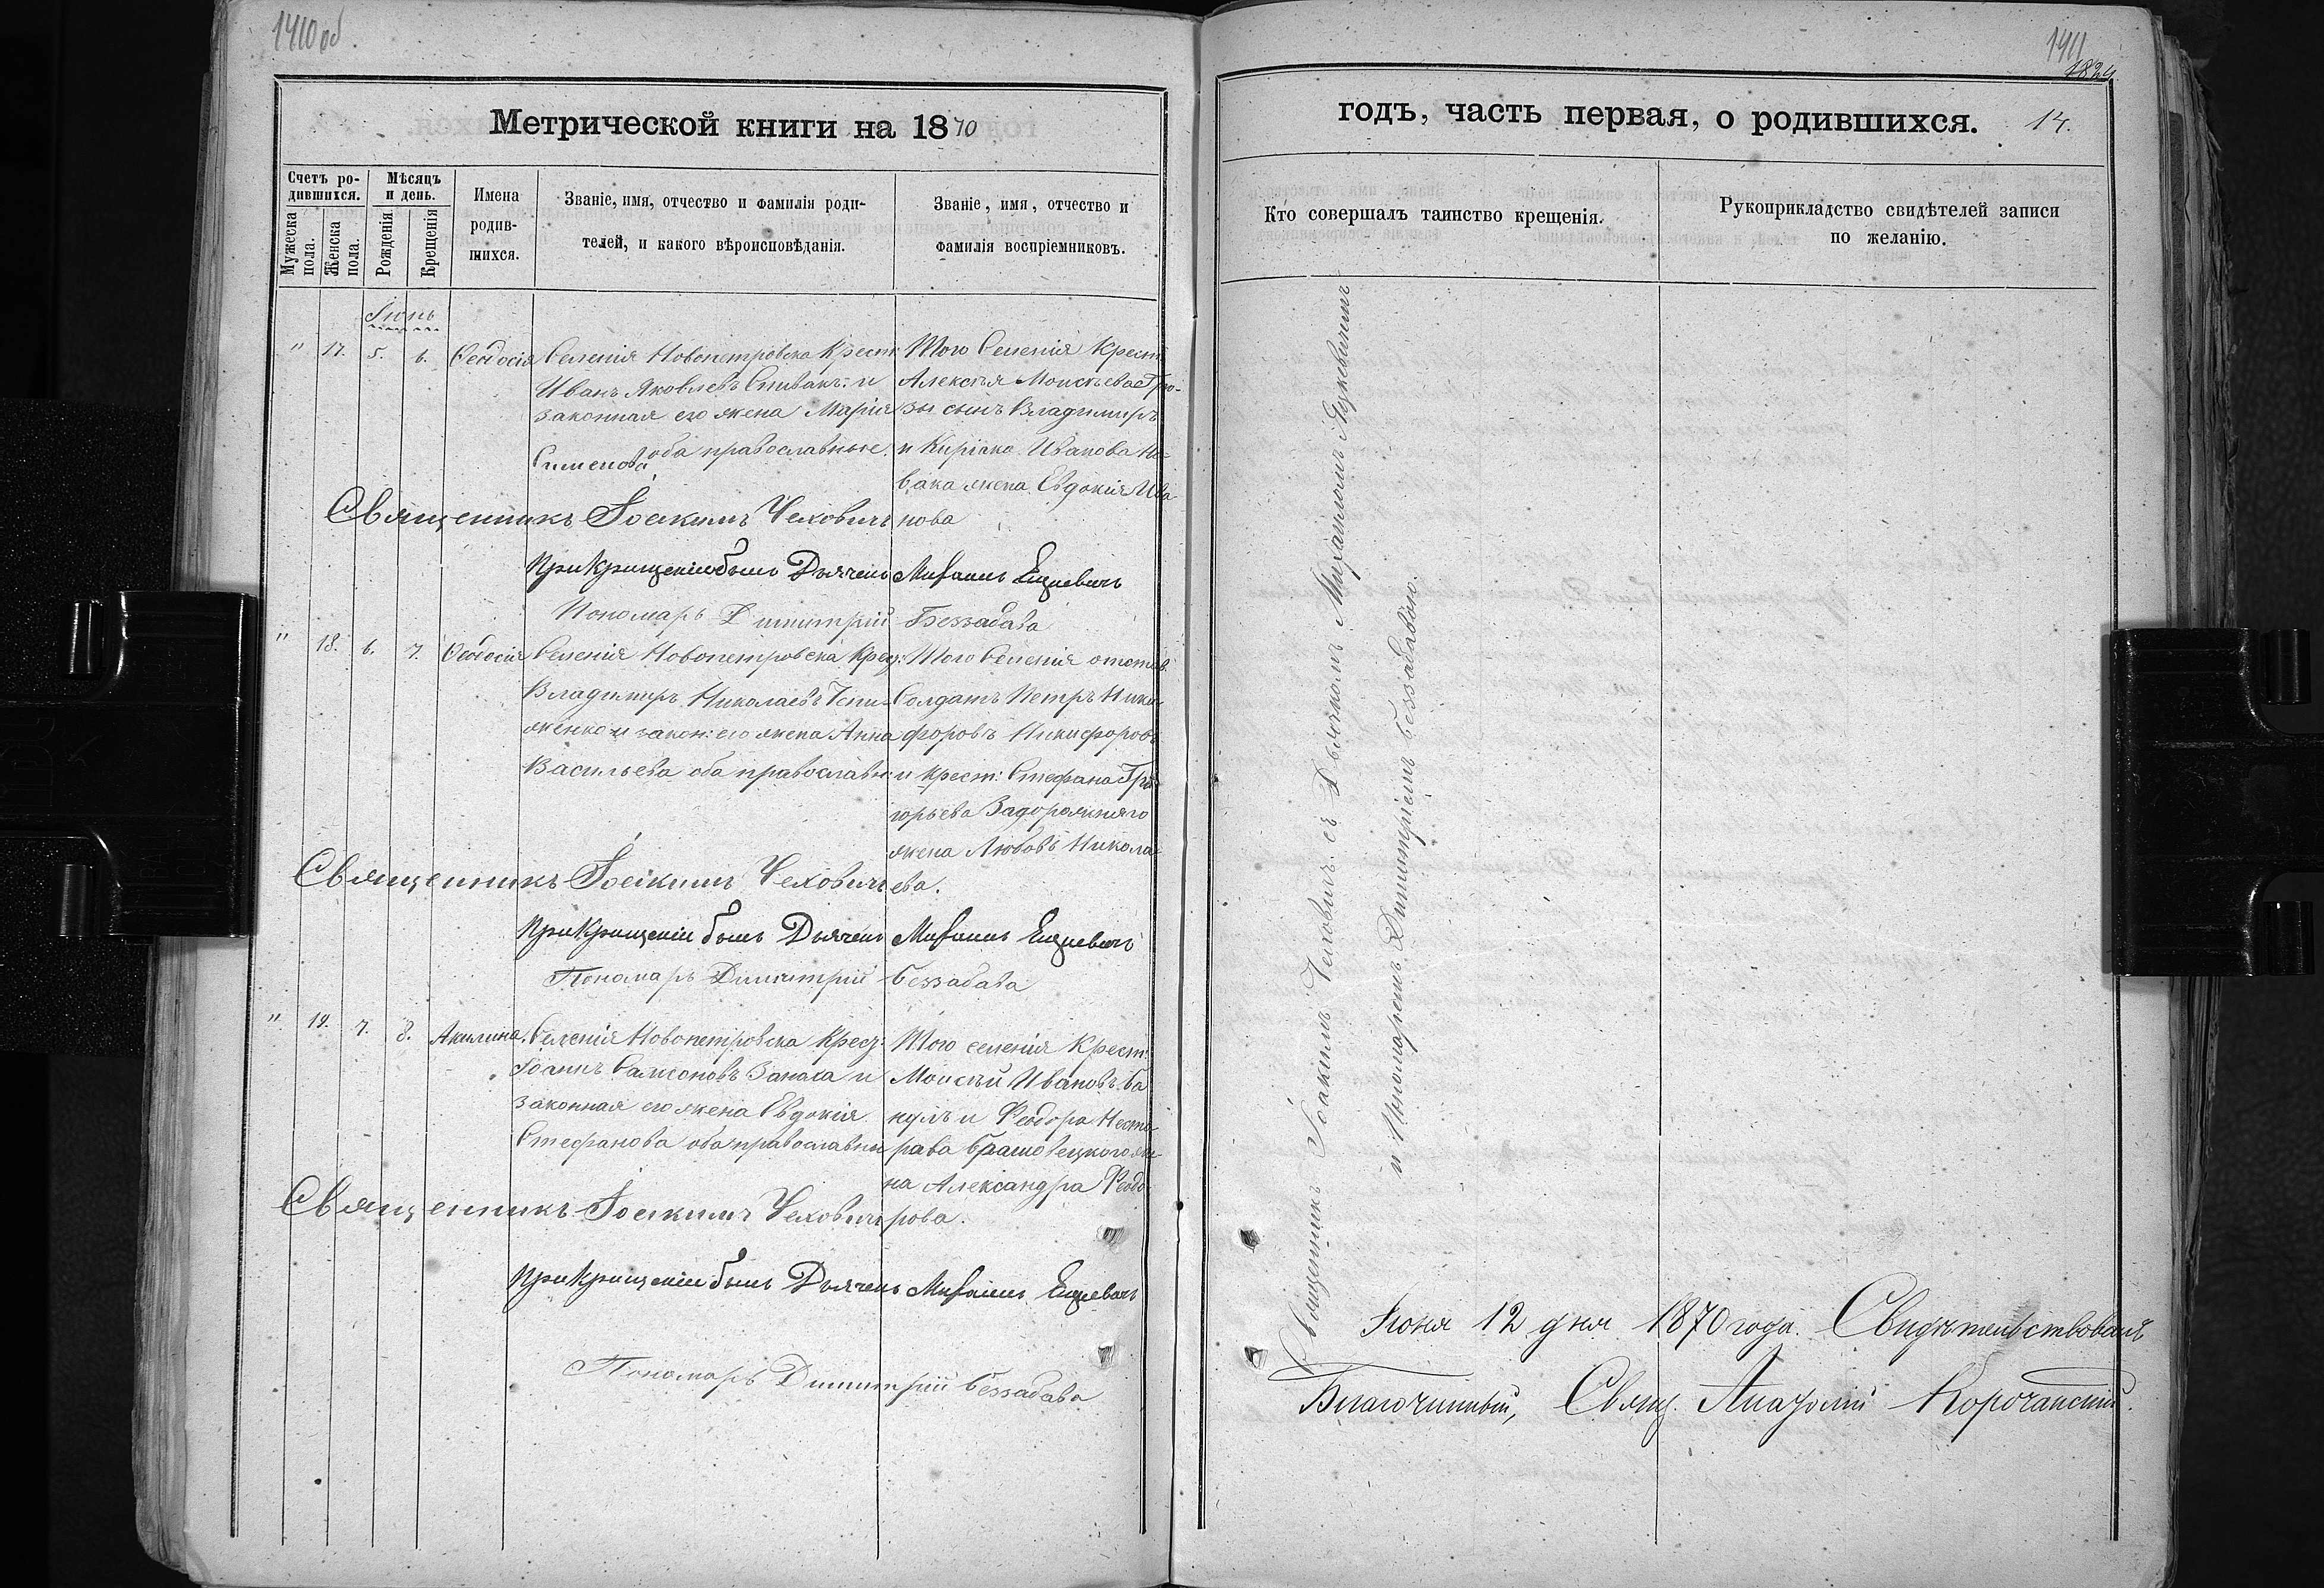 1410 об
Метрической книги на 1870
Счетъ ро-
дившихся.
Мѣсяцъ
и день.
Имена
родив-
шихся.
Званіе, имя, отчество и фамилія роди-
телей, и какого вѣроисповѣданія.
Званіе, имя, отчество и
фамилія воспріемниковъ.
Мужеска
пола.
Женска
пола.
Рожденія.
Крещенія
Іюнь
" 17. 5. 6. Феодосія
Селенія Новопетровска Крест:
Иванъ Яковлевъ Спивакъ: и
законная его жена Марія
Симеонова оба православные.
Того Селенія Крест:
Алексѣя Моисѣева
сынъ Владимиръ
и Киріяка Иванова Но-
вака жена Евдокія Ива-
нова
Священникъ Іоакимъ Чеховичъ
При Крищеніи былъ Дьячекъ Михаилъ Ецкевичъ
Пономарь Димитрій Беззабава
" 18. 6. 7. Феодосія
Селенія Новопетровска Крес:
Владимиръ Николаевъ
и закон: его жена Анна
Васильева оба православн:
Того Селенія отстав:
Солдатъ Петръ Ники-
форовъ Никифоровъ
и крест: Стефана Гри-
горьева Задорожняго
жена Любовь Никола-
ева.
Священникъ Іоакимъ Чеховичъ
При Крищеніи былъ Дьячекъ Михаилъ Ецкевичъ
Пономарь Димитрій Беззабава
" 19. 7. 8. Акилина.
Селенія Новопетровска Крес:
Іоаннъ Самсоновъ Занаха и
законная его жена Евдокія
Стефанова оба православны
Того селенія Крест:
Моисѣй Ивановъ Ба-
нулъ и Феодора Несто-
рова же-
на Александра Феодо-
рова.
Священникъ Іоакимъ Чеховичъ
При Крищеніи былъ Дьячекъ Михаилъ Ецкевичъ
Пономарь Димитрій Беззабава
1411
1824
годъ, часть первая, о родившихся. 14.
Кто совершалъ таинство крещенія.
Рукоприкладство свидѣтелей записи
по желанію.
Священникъ Іоакимъ Чеховичъ съ Дьячкомъ Михаиломъ Яцкевичемъ
и Пономаремъ Димитріемъ Беззабавою.
Іюня 12 дня 1870 года. Свидѣтельствовалъ
Благочинный, Свящ. Анатолій Корочанскій.